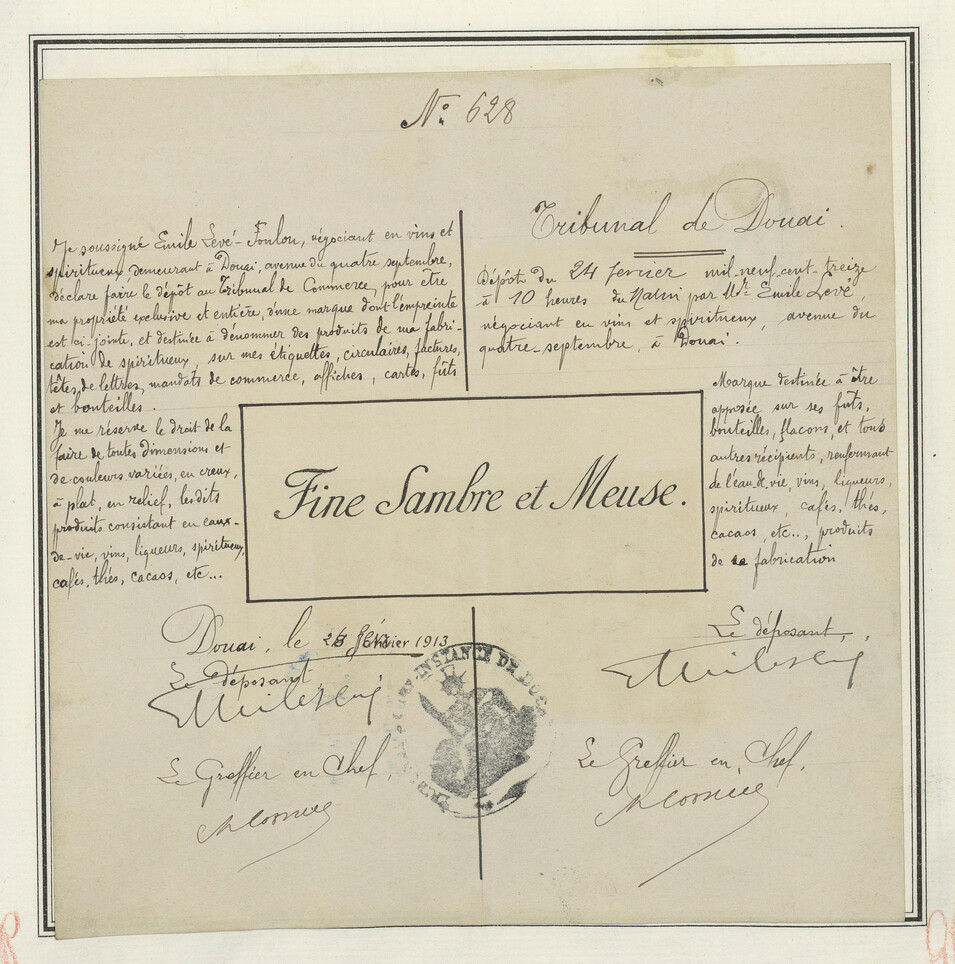 N° 628
Je soussigné Emile Levé-Foulou, négociant en vins et
spiritueux demeurant à Douai, avenue du quatre septembre,
déclare faire le dépôt au Tribunal de Commerce, pour être
ma propriété exclusive et entière, d'une marque dont l'empreinte
est ci-jointe, et destinée à dénommer des produits de ma fabri-
cation de spiritueux, sur mes étiquettes, circulaires, factures,
têtes de lettres, mandats de commerce, affiches, cartes, fûts
et bouteilles.
Je me réserve le droit de la
faire de toutes dimensions et
de couleurs variées, en creux,
à plat, en relief, les dits
produits consistant en eaux-
de-vie, vins, liqueurs, spiritueux,
cafés, thés, cacaos, etc...
Tribunal de Douai.
Dépôt du 24 fevrier mil-neuf-cent-treize
à 10 heures du Matin par Mr. Emile Levé,
négociant en vins et spiritueux, avenue du
quatre-septembre, à Douai.
Marque destinée à être
apposée sur ses fûts,
bouteilles, flacons, et tous
autres récipients, renfermant
de l'eau de vie, vins, liqueurs,
spiritueux, cafés, thés,
cacaos, etc.., produits
de sa fabrication
Fine Sambre et Meuse.
Douai, le février 1913
Le déposant,
Le Greffier en Chef,
Le déposant,
Le Greffier en Chef,
INSTANCE DE DOUAI